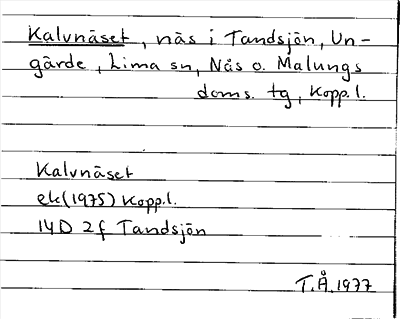 Kalvnäset, näs i Tandsjön, Un-
gärde, Lima sn, Nås o. Malungs
doms. tg, Kopp.l.
Kalvnäset
ek(1975) Kopp.l.
14D 2f Tandsjön
T.Å.1977